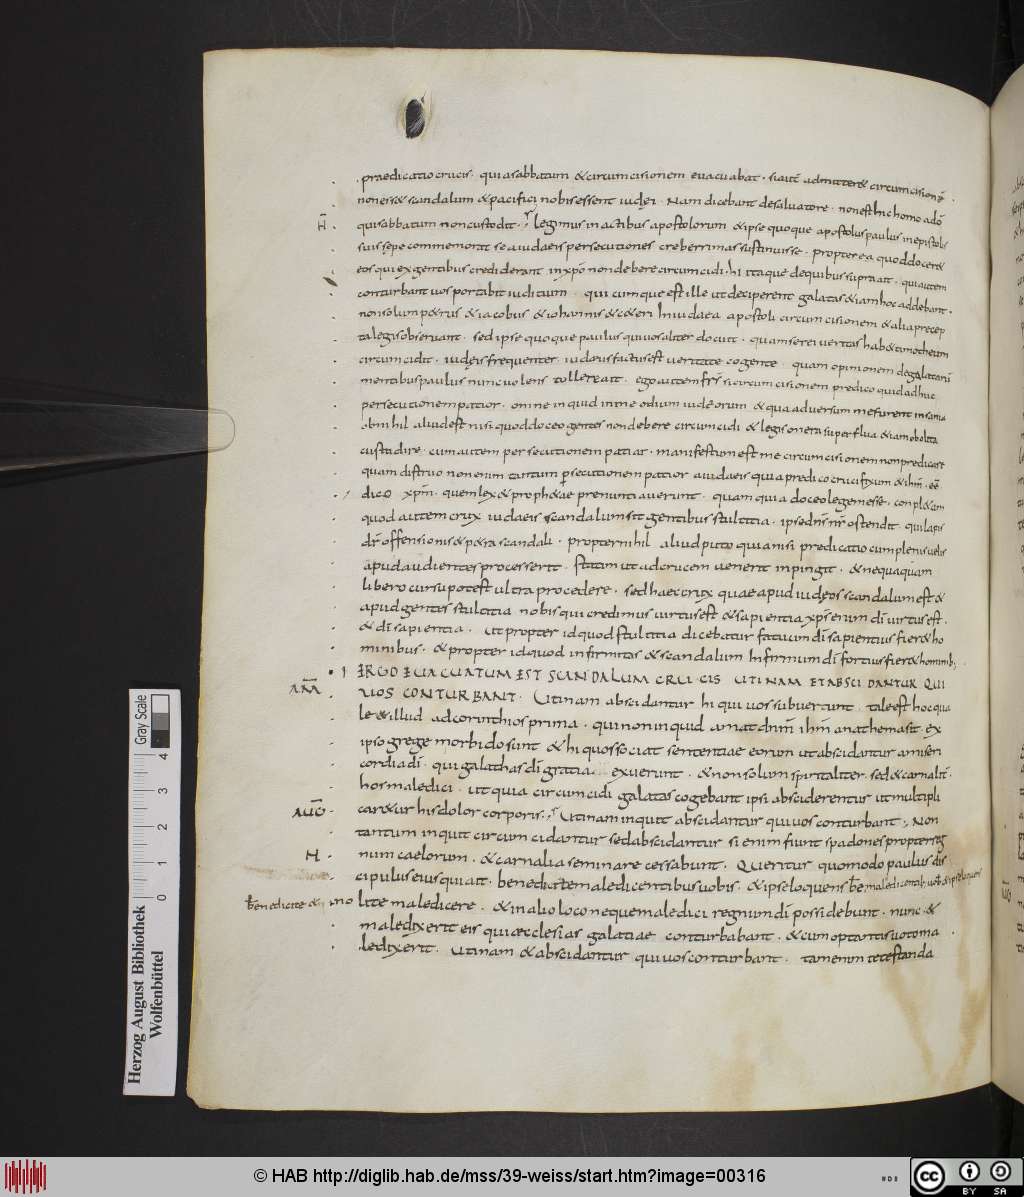 praedicatio crucis · quia sabbatum & circumcisionem evacuabat · si autē admitter& circumcisionē ·
non eis & scandalum & pacifici nobis essent iudęi · Nam dicebant de salvatore · non est hic homo a dō
H̄ qui sabbatum non custodit · legimus in actibus apostolorum & ipse quoque apostolus paulus in epistolis
suis sępe commemorat se a iudaeis persecutiones creberrimas sustinuisse · propterea quod docer&
eos qui ex gentibus crediderant in xp̄o non debere circumcidi · hi itaque de quibus supra ait · qui autem
conturbant vos portabit iudicium · quicumque est ille ut deciperent galatas & iam hoc addebant ·
non solum p&rus & iacobus & iohannis & c&eri in iudaea apostoli circumcisionem & alia precep
ta legis observant · sed ipse quoque paulus qui vos aliter docuit · quam se rei veritas hab& timotheum
circumcidit · iudęis frequenter iudaeus factus est veritate cogente · quam opinionem de galatarū
mentibus paulus nunc volens tollere ait · ego autem frs̄ si circumcisionem predico quid adhuc
persecutionem patior · omne inquid in me odium iudeorum & qua adversum me furent insania
ab nihil aliud est nisi quod doceo gentes non debere circumcidi & legis onera superflua & iam abolita
custodire · cum autem persecutionem patiar · manifestum est me circumcisionem non predicare
quam distruo non enim tantum persecutionem patior a iudaeis quia predico crucifixum & ihm̄ · eē
dico xpm̄ · quem lex & proph&ae prenuntiaverunt · quam quia doceo legem esse · conpl&am
quod autem crux iudaeis scandalum sit gentibus stultitia · ipse dn̄s nr̄ ostendit · qui lapis
dr̄ offensionis & p&ra scandali · propter nihil aliud puto quia nisi predicatio cum plenis velis
apud audientes processerit · statim ut ad crucem venerit inpingit · & nequaquam
libero cursu potest ultra procedere · sed haec crux quae apud iudęos scandalum est &
apud gentes stultitia nobis qui credimus virtus est & sapientia xp̄s enim dī virtus est ·
& dī sapientia · Ut propter id quod stultitia dicebatur fatuum dī sapientius fier& ho
minibus · & propter id quod infirmitas & scandalum infirmum dī fortius fier& hominib;
I ERGO EUACUATUM EST SCANDALUM CRUCIS UTINAM ET ABSCIDANTUR QUI
VOS CONTURBANT · Utinam abscidantur hi qui vos subvertunt · tale est hoc qua
le & illud ad corinthios prima · qui non inquid amat dnm̄ ihm̄ anathema sit · ex
ipso grege morbido sunt & hi quos sociat sententiae eorum ut abscidantur a miseri
cordia dī · qui galathas dī gratia exuerunt · & non solum spiritaliter · sed & carnalit̄ ·
hos maledici · ut quia circumcidi galatas cogebant ipsi absciderentur ut multipli
AUḠ car&ur his dolor corporis · Utinam inquit abscidantur qui vos conturbant · Non
tantum inquit circumcidantur sed abscidantur si enim fiunt spadones propter reg
H num caelorum · & carnalia seminare cessabunt · Queritur quomodo paulus dis
cipulus eius qui ait · benedicite maledicentibus vobis · & ipse loquens
benedicite & nolite maledicere · & in alio loco neque maledici regnum dī possidebunt · nunc · &
maledixerit eis qui aecclesias galatiae conturbabant · & cum optantis voto ma
ledixerit · Utinam & abscidantur qui vos conturbant · tam enim detestanda
Herzog August Bibliothek
Wolfenbüttel
Gray Scale
0 1 2 3 4
© HAB http://diglib.hab.de/mss/39-weiss/start.htm?image=00316
cc BY SA